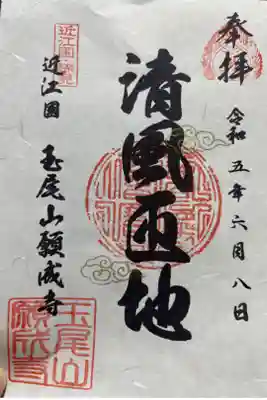 奉拝
令和五年六月八日
清風匝地
近江国
玉尾山願成寺
玉尾山
願成寺